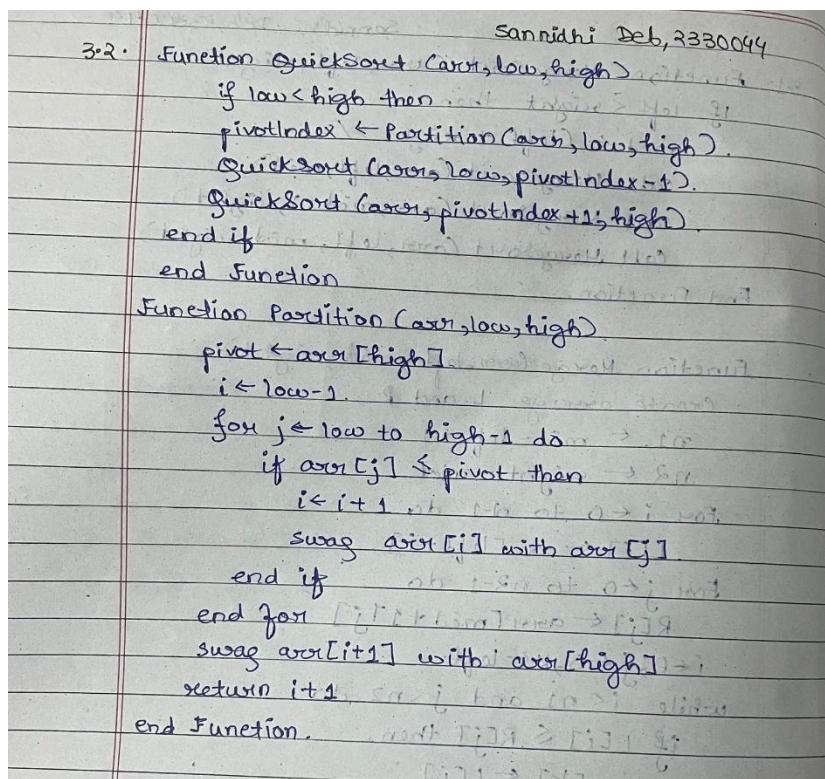 Sannidhi Deb, 2330044
3.2. Function QuickSort (arr, low, high)
if low < high then
pivotIndex ← Partition (arr, low, high).
QuickSort (arr, low, pivotIndex-1).
QuickSort (arr, pivotIndex+1, high).
end if
end Function
Function Partition (arr, low, high)
pivot ← arr [high]
i ← low-1.
for j ← low to high-1 do
if arr [j] ≤ pivot then
i ← i + 1.
swap arr [i] with arr [j]
end if
end for
swap arr[i+1] with arr [high]
return i+1
end Function.